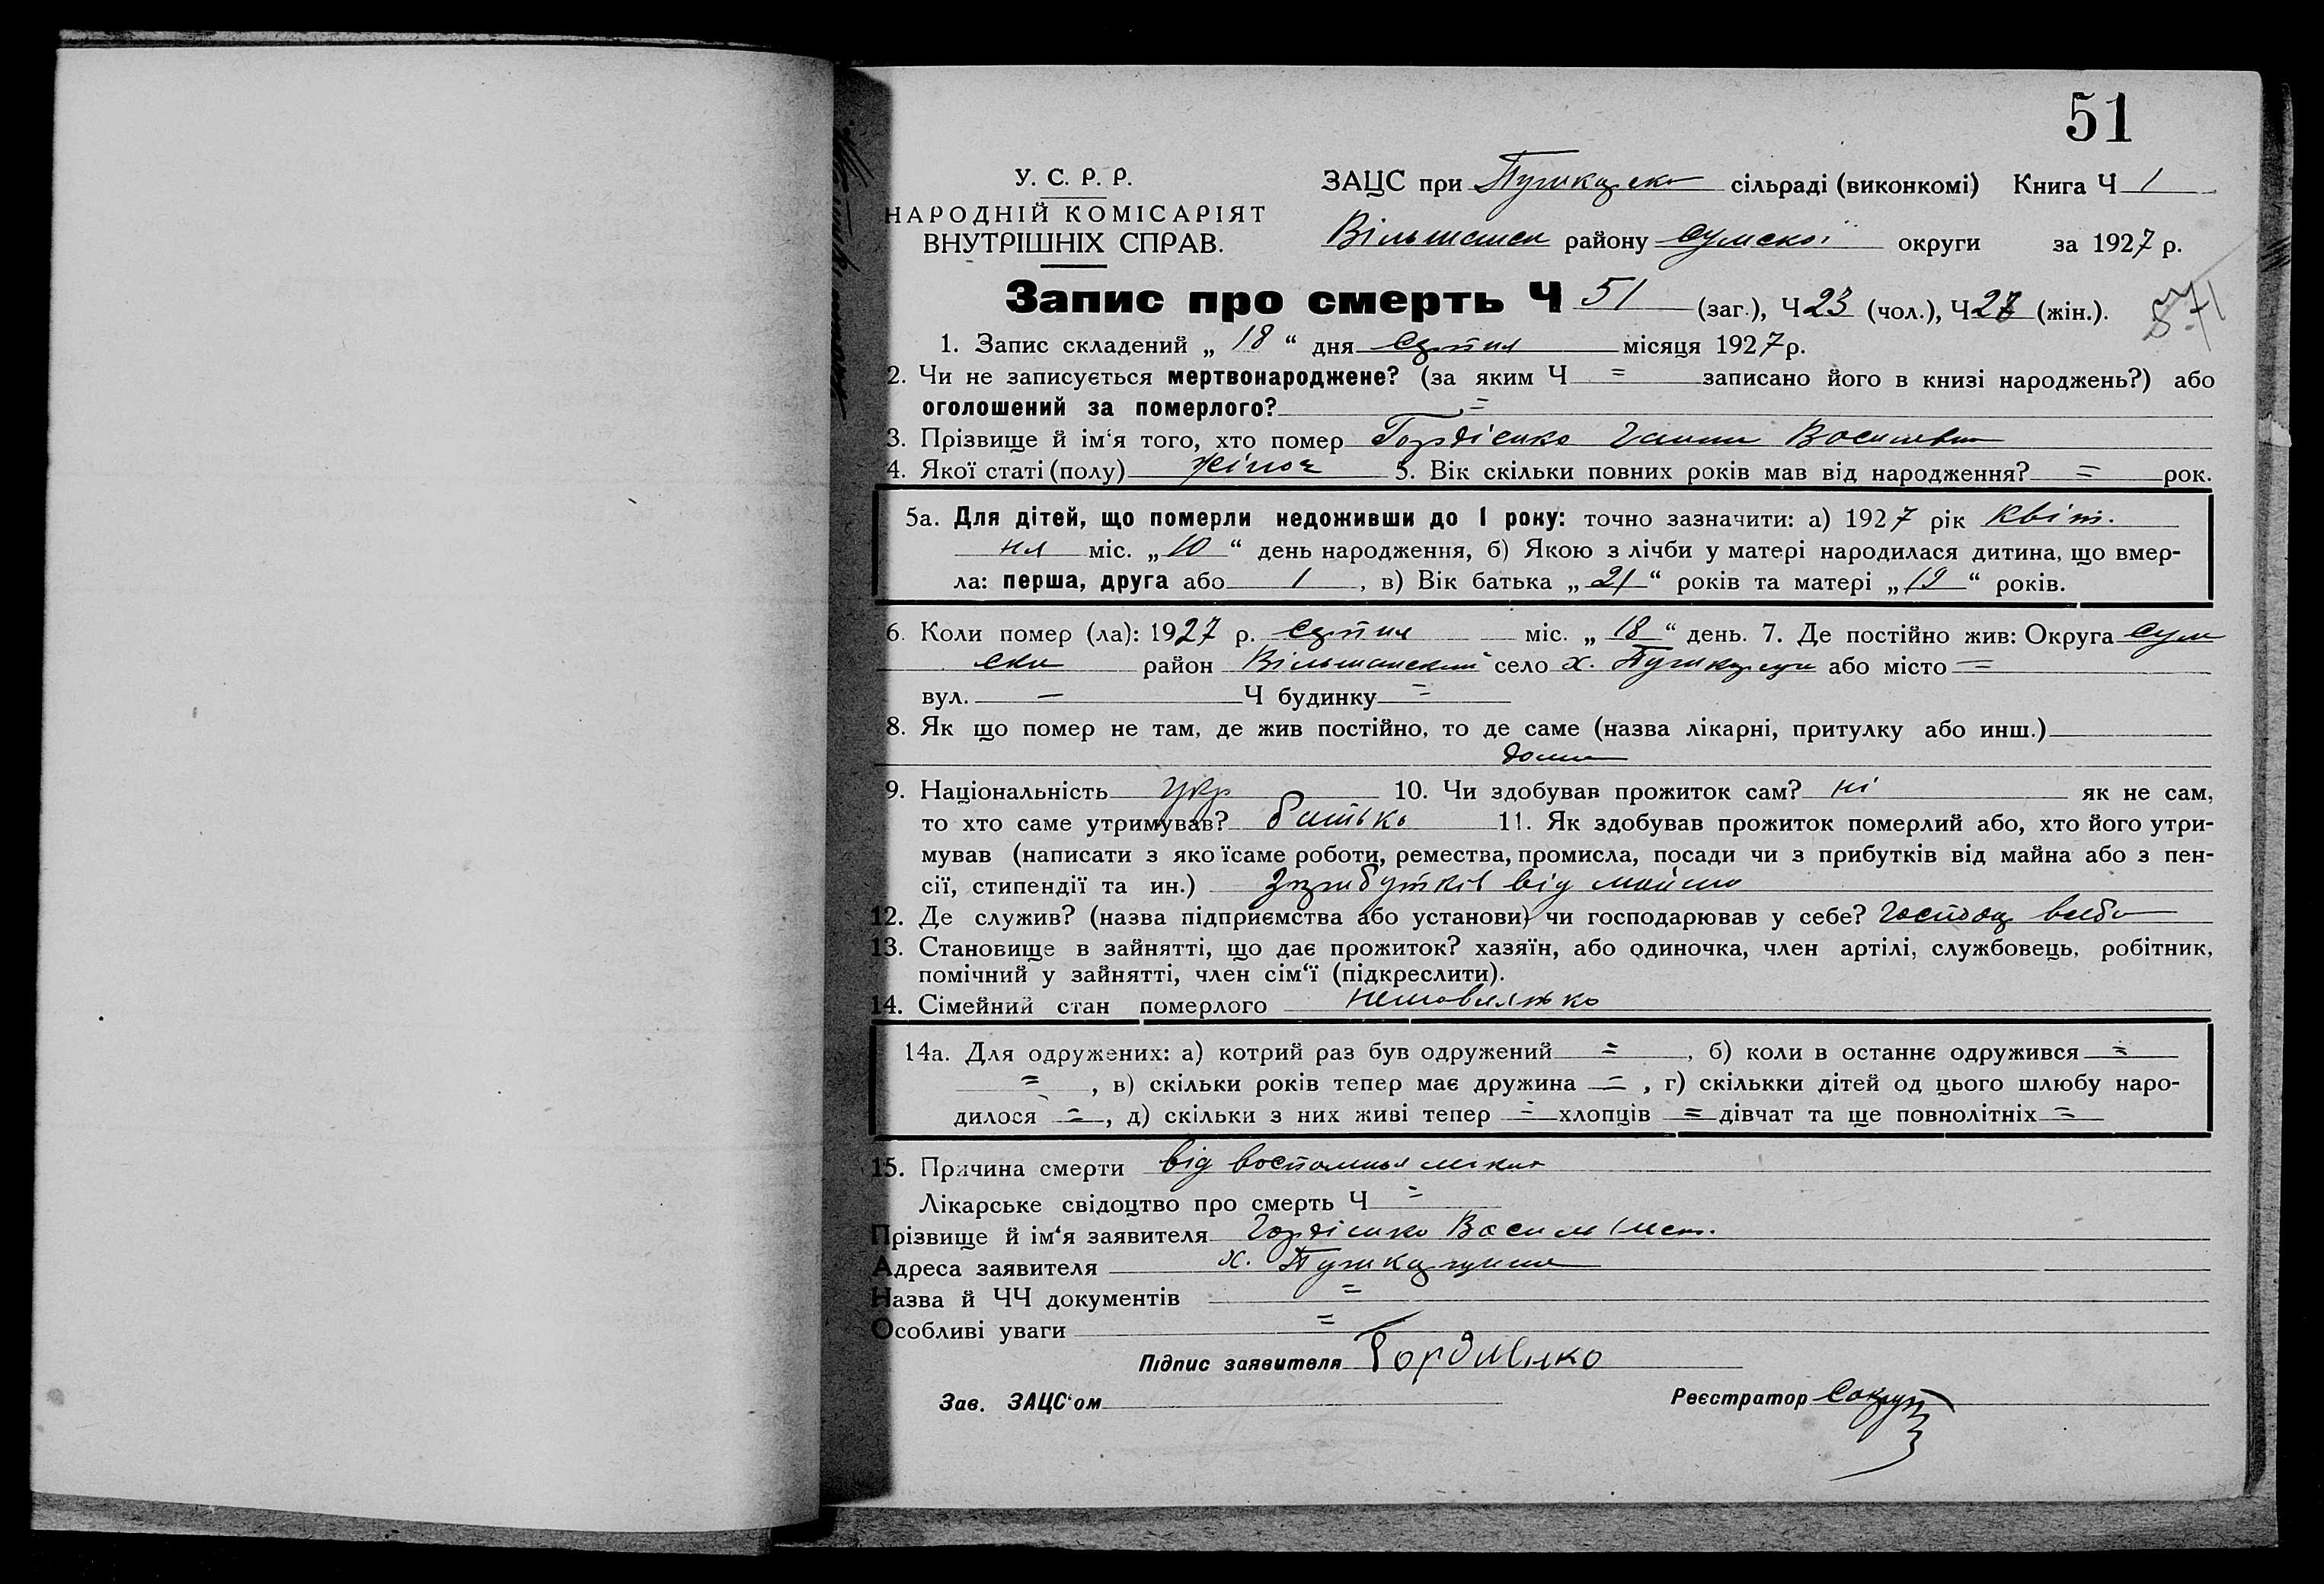 51
У. С. Р. Р.
НАРОДНІЙ КОМІСАРІЯТ
ВНУТРІШНІХ СПРАВ.
ЗАЦС при Пушкарско сільраді (виконкомі) Книга Ч 1
Вільшанск району Сумскої округи за 1927 р.
Запис про смерть Ч 51 (заг.), Ч 23 (чол.), Ч 28 (жін.).
571
1. Запис складений „ 18 “ дня Серпня місяця 1927 р.
2. Чи не записується мертвонароджене? (за яким Ч = записано його в книзі народжень?) або
оголошений за померлого? =
3. Прізвище й ім‘я того, хто помер Гордієнко Ганна Васильевна
4. Якої статі (полу) жіноч 5. Вік скільки повних років мав від народження? = рок.
5а. Для дітей, що померли недоживши до 1 року: точно зазначити: а) 1927 рік Квіт.
ня міс. „ 10 “ день народження, б) Якою з лічби у матері народилася дитина, що вмер-
ла: перша, друга або 1 , в) Вік батька „ 21 “ років та матері „ 19 “ років.
6. Коли помер (ла): 1927 р. Серпня міс. „ 18 “ день. 7. Де постійно жив: Округа Сум
ска район Вільшанский село х. або місто =
вул. — Ч будинку =
8. Як що помер не там, де жив постійно, то де саме (назва лікарні, притулку або инш.)
дома
9. Національність Укр 10. Чи здобував прожиток сам? ні як не сам,
то хто саме утримував? батько 11. Як здобував прожиток померлий або, хто його утри-
мував (написати з якоїсаме роботи, ремества, промисла, посади чи з прибутків від майна або з пен-
сії, стипендії та ин.) Зприбутків від майна
12. Де служив? (назва підприємства або установи) чи господарював у себе? Господ всебе
13. Становище в зайнятті, що дає прожиток? хазяїн, або одиночка, член артілі, службовець, робітник,
помічний у зайнятті, член сім‘ї (підкреслити).
14. Сімейний стан померлого немовлятко
14а. Для одружених: а) котрий раз був одружений = , б) коли в останнє одружився =
= , в) скільки років тепер має дружина = , г) скількки дітей од цього шлюбу наро-
дилося = , д) скільки з них живі тепер = хлопців = дівчат та ще повнолітніх =
15. Причина смерти від воспоминя легких
Лікарське свідоцтво про смерть Ч =
Прізвище й ім‘я заявителя Гордієнко Василь
Адреса заявителя х.
Назва й ЧЧ документів =
Особливі уваги =
Підпис заявителя Гордиенко
Зав. ЗАЦС‘ом
Реєстратор